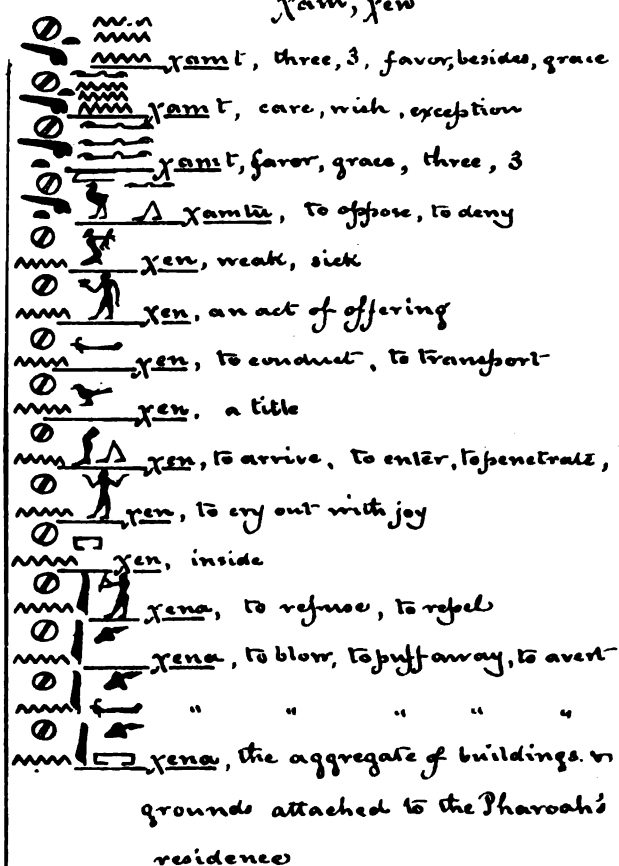 χam, χen
χamt, three, 3, favor, besides, grace
χamt, care, wish, exception
χamt, favor, grace, three, 3
χamtū, to oppose, to deny
χen, weak, sick
χen, an act of offering
χen, to conduct, to transport
χen, a title
χen, to arrive, to enter, to penetrate,
χen, to cry out with joy
χen, inside
χena, to refuse, to repel
χena, to blow, to puff away, to avert
" " " " "
χena, the aggregate of buildings
grounds attached to the Pharoah's
residence